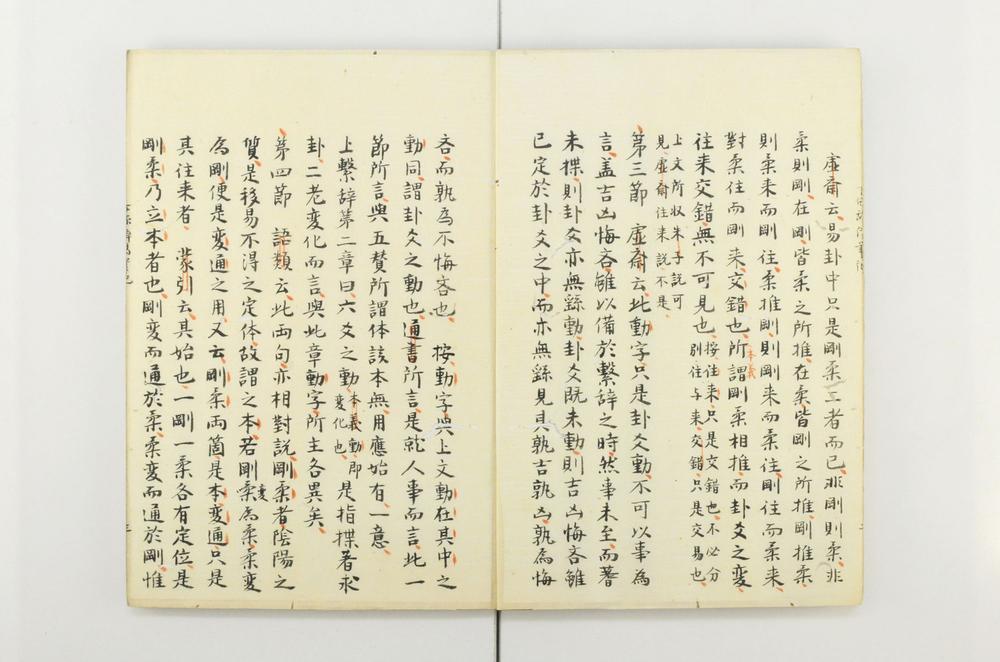 虚齋云易卦中只是剛柔二者而已非剛則柔非
柔則剛在剛皆柔之所推在柔皆剛之所推剛推柔
則柔来而剛往柔推剛則剛来而柔往剛往而柔来
對柔往而剛来交錯也所謂剛柔相推而卦爻之變
本義
往来交錯無不可見也
按往来只是交錯也不必分
別往与来交錯只是交易也
上文所収朱子説可
見虚齋往来説不是
第三節 虚齋云此動字只是卦爻動不可以事為
言盖吉凶悔吝雖以備於繫辞之時然事未至而蓍
未揲則卦爻亦無繇動卦爻既未動則吉凶悔吝雖
已定於卦爻之中而亦無繇見其孰吉孰凶孰為悔
吝而孰為不悔吝也 按動字與上文動在其中之
動同謂卦爻之動也通書所言是就人事而言此一
節所言與五賛所謂体該本無用應始有一意
上繫辞第二章曰六爻之動
本義動即
変化也
是指揲蓍求
卦二老変化而言與此章動字所主各異矣
第四節 語類云此両句亦相對説剛柔者陰陽之
質是移易不得之定体故謂之本若剛柔為柔柔変
変
為剛便是変通之用又云剛柔両箇是本変通只是
其往来者 蒙引云其始也一剛一柔各有定位是
剛柔乃立本者也剛変而通於柔柔変而通於剛惟